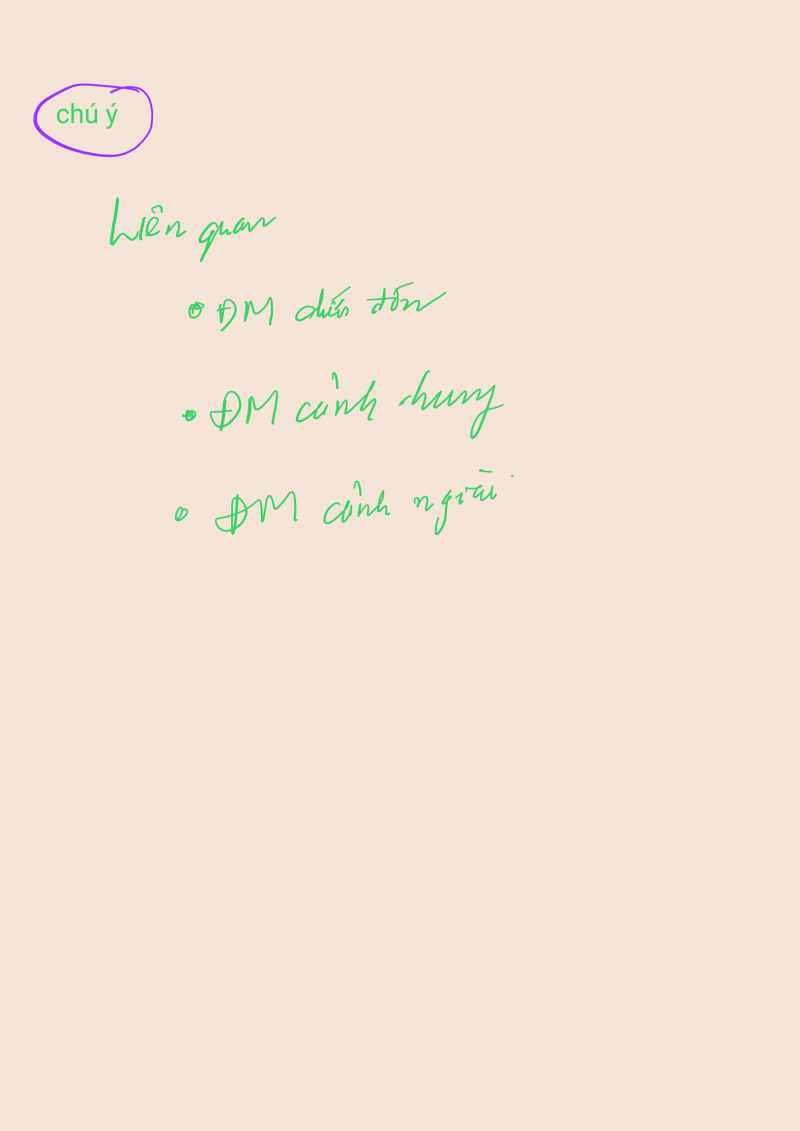 chú ý
Liên quan
ĐM dưới đòn
ĐM cảnh chung
ĐM cảnh ngoài